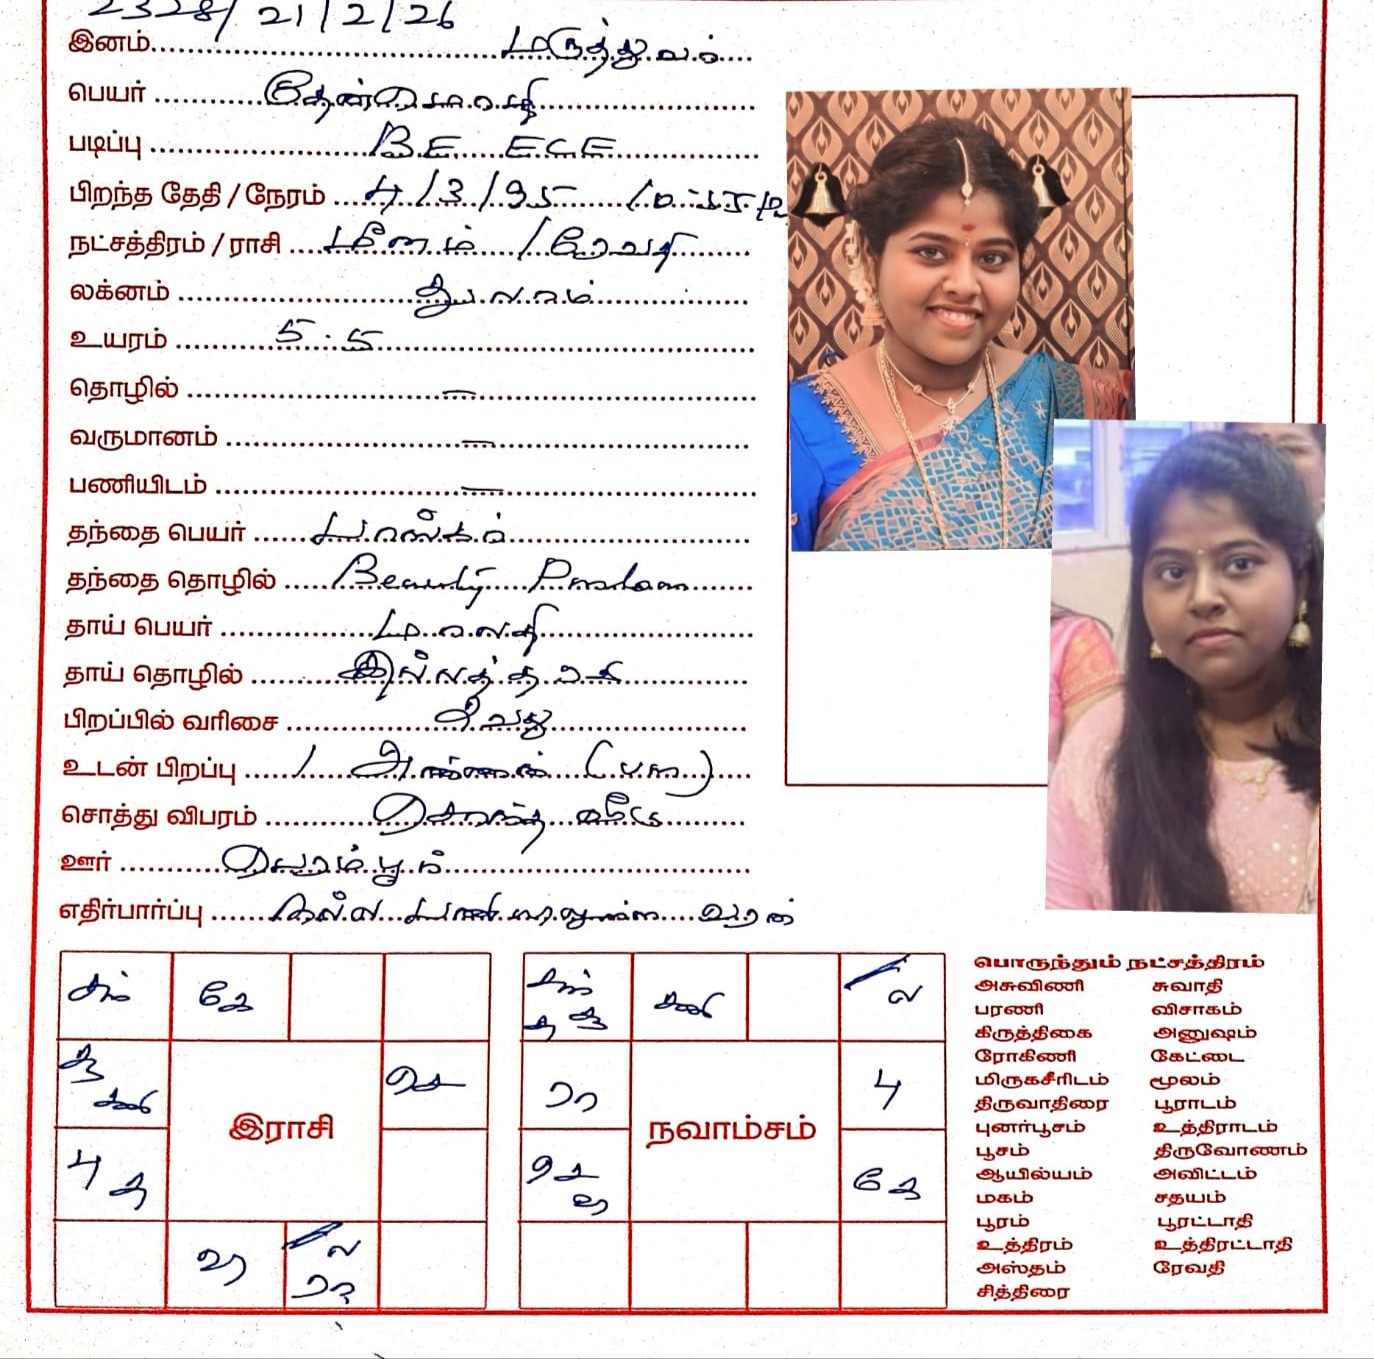 2328/ 21/2/26
இனம் மருத்துவம்
பெயர் தேன்மொழி
படிப்பு B.E ECE
பிறந்த தேதி / நேரம் 4/3/95
நட்சத்திரம் / ராசி மீனம் / ரேவதி
லக்னம் துலாம்
உயரம் 5.5
தொழில் —
வருமானம் —
பணியிடம் —
தந்தை பெயர் பாஸ்கர்
தந்தை தொழில் Beauty
தாய் பெயர் மாலதி
தாய் தொழில் இல்லத்தரசி
பிறப்பில் வரிசை 2வது
உடன் பிறப்பு 1 அண்ணன்
சொத்து விபரம் சொந்த வீடு
ஊர் பெரம்பூர்
எதிர்பார்ப்பு நல்ல வரன்
சந் கே
சூ சனி
செ
இராசி
பு சு
வி ல
ரா
சந் சூ சு சனி ல
ரா பு
நவாம்சம்
செ வி கே
பொருந்தும் நட்சத்திரம்
அசுவினி சுவாதி
பரணி விசாகம்
கிருத்திகை அனுஷம்
ரோகிணி கேட்டை
மிருகசீரிடம் மூலம்
திருவாதிரை பூராடம்
புனர்பூசம் உத்திராடம்
பூசம் திருவோணம்
ஆயில்யம் அவிட்டம்
மகம் சதயம்
பூரம் பூரட்டாதி
உத்திரம் உத்திரட்டாதி
அஸ்தம் ரேவதி
சித்திரை